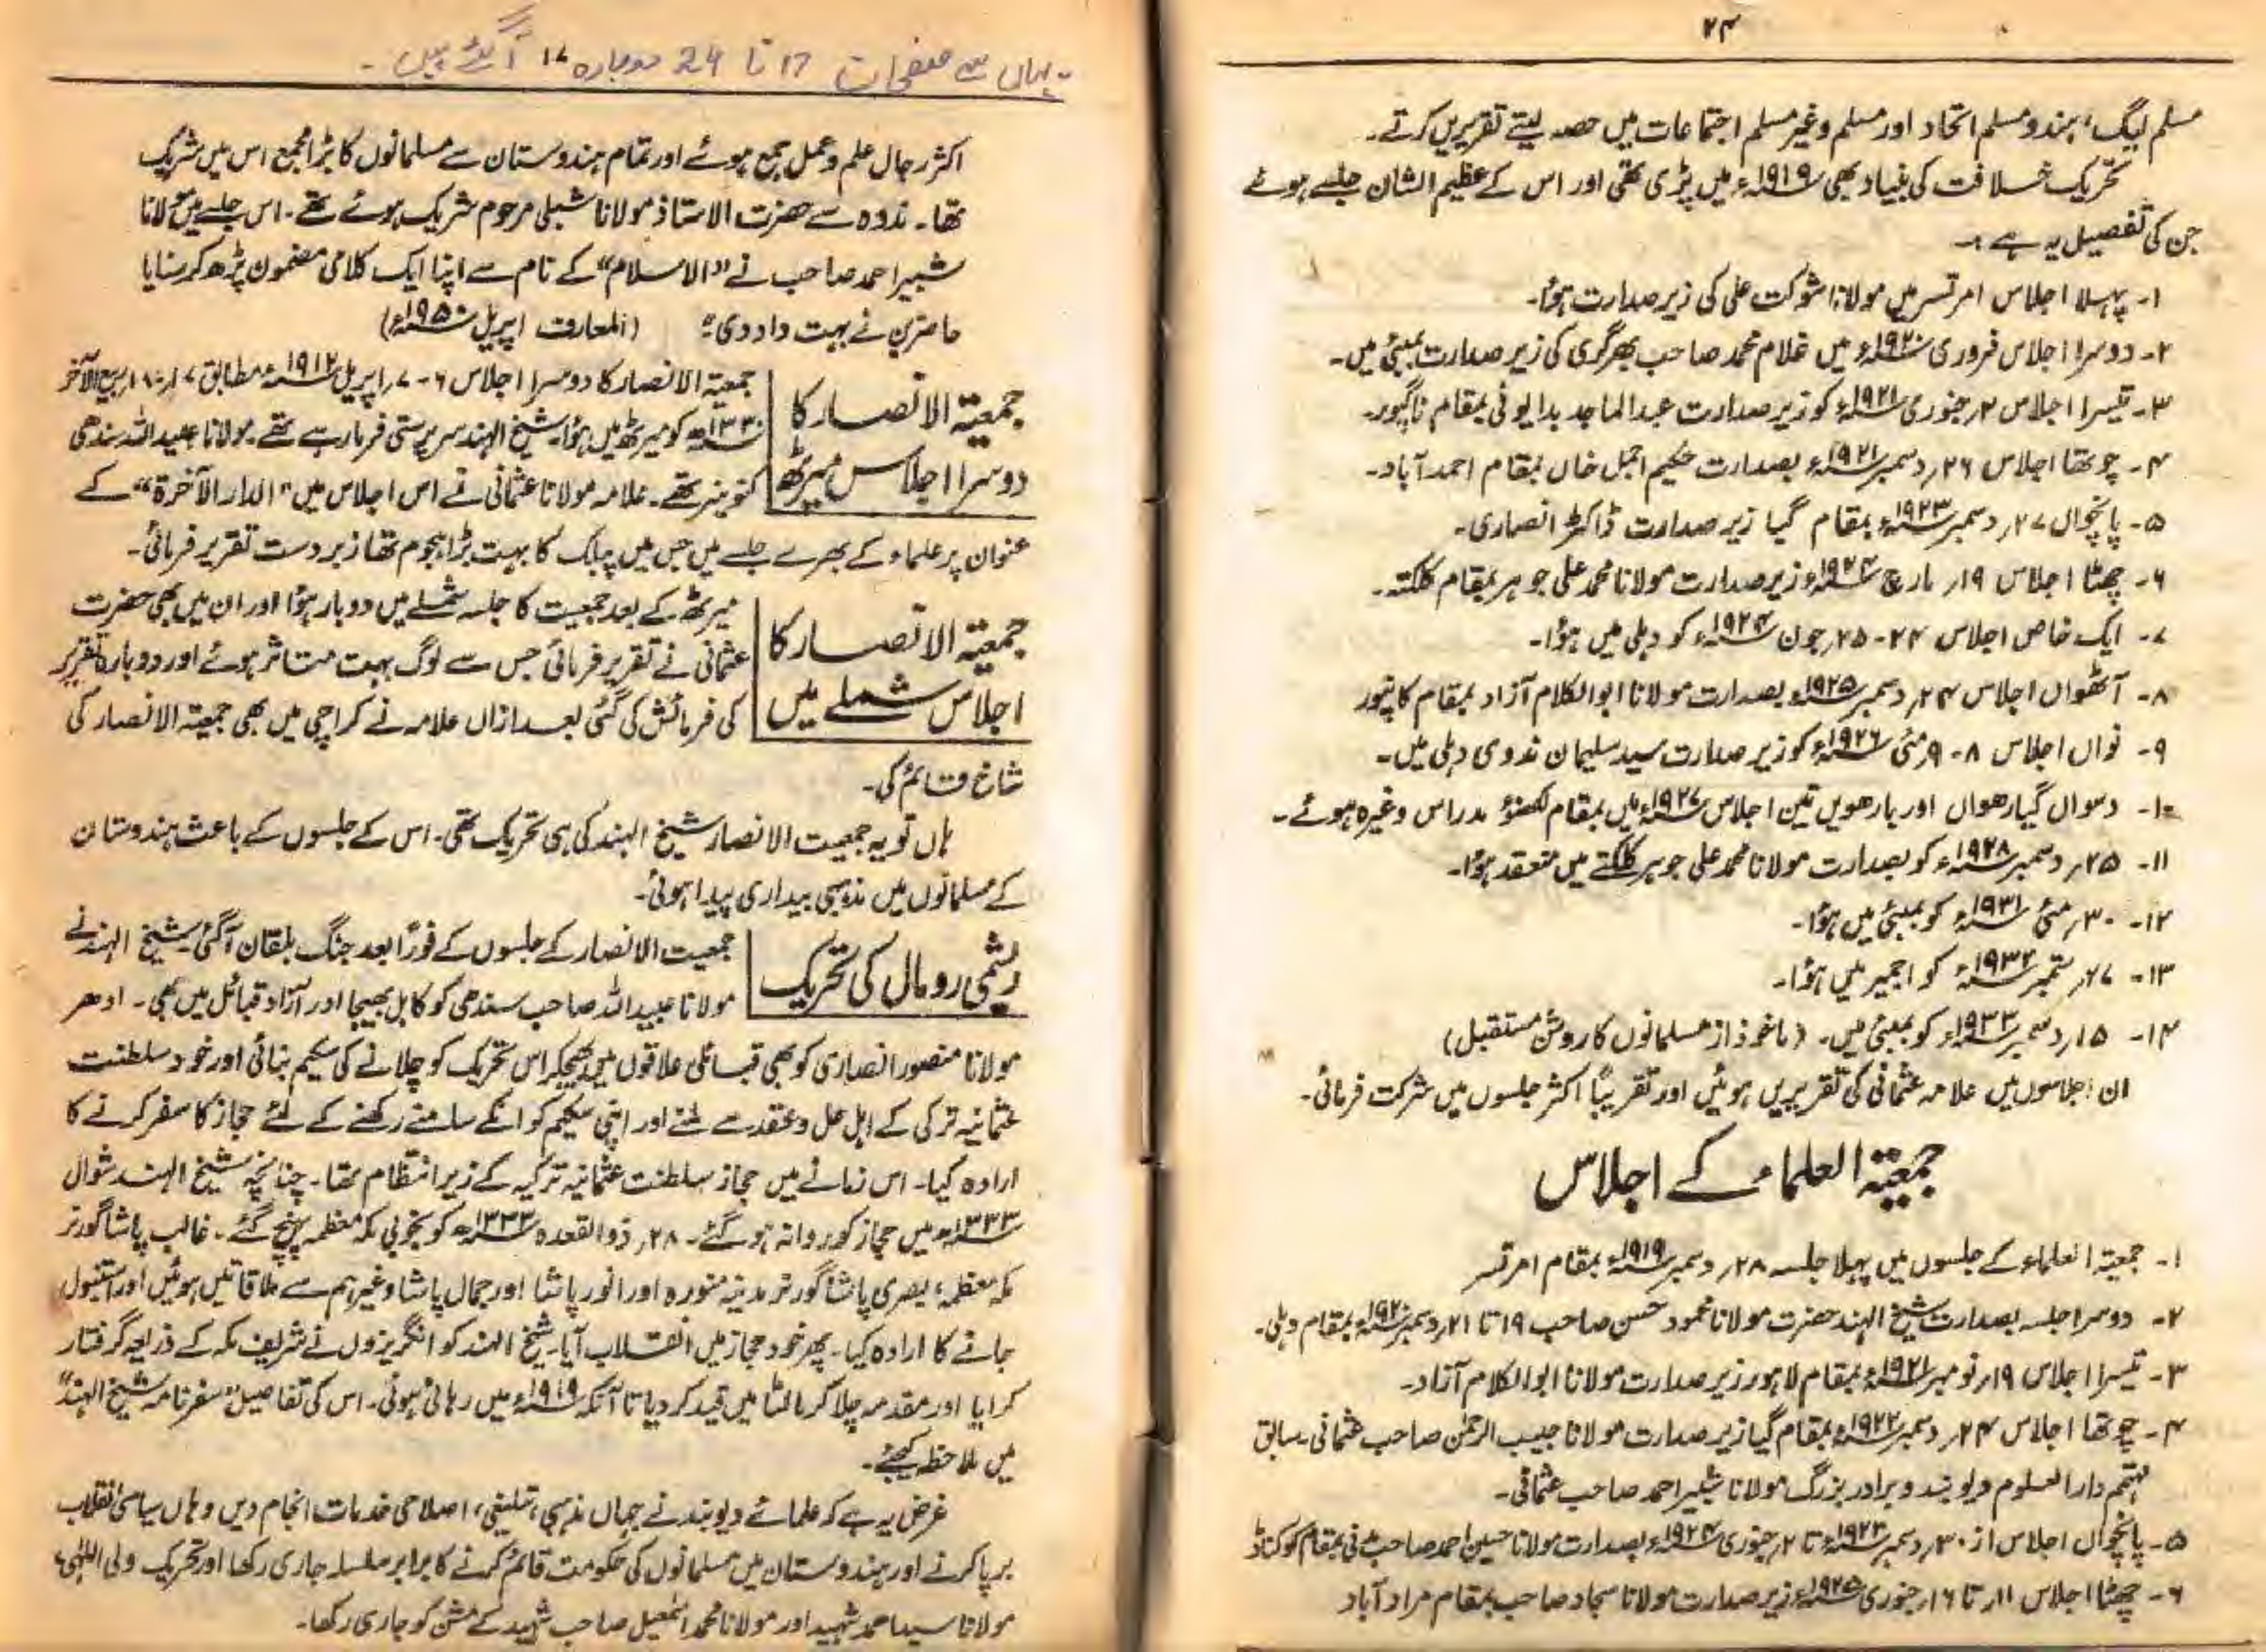 ۲۴
مسلم لیگ، ہندو مسلم اتحاد اور مسلم و غیر مسلم اجتماعات میں حصہ لیتے تقریریں کرتے۔
تحریک خلافت کی بنیاد بھی ۱۹۱۹ء میں پڑی تھی اور اس کے عظیم الشان جلسے ہوئے
جن کی تفصیل یہ ہے :۔
۱۔ پہلا اجلاس امرتسر میں مولانا شوکت علی کی زیر صدارت ہوا۔
۲۔ دوسرا اجلاس فروری ۱۹۲۰ء میں غلام محمد صاحب بھرگری کی زیر صدارت بمبئی میں۔
۳۔ تیسرا اجلاس ۲ر جنوری ۱۹۲۱ء کو زیر صدارت عبد الماجد بدایونی بمقام ناگپور۔
۴۔ چوتھا اجلاس ۲۶ر دسمبر ۱۹۲۱ء بصدارت حکیم اجمل خاں بمقام احمد آباد۔
۵۔ پانچواں ۲۷ر دسمبر ۱۹۲۳ء بمقام گیا زیر صدارت ڈاکٹر انصاری۔
۶۔ چھٹا اجلاس ۱۹ر مارچ ۱۹۲۴ء زیر صدارت مولانا محمد علی جوہر بمقام کلکتہ۔
۷۔ ایک خاص اجلاس ۲۴۔۲۵ر جون ۱۹۲۴ء کو دہلی میں ہوا۔
۸۔ آٹھواں اجلاس ۲۴ر دسمبر ۱۹۲۵ء بصدارت مولانا ابو الکلام آزاد بمقام کانپور
۹۔ نواں اجلاس ۸۔۹ر مئی ۱۹۲۶ء کو زیر صدارت سید سلیمان ندوی دہلی میں۔
۱۰۔ دسواں گیارھواں اور بارھویں تین اجلاس ۱۹۲۷ء میں بمقام لکھنؤ مدراس وغیرہ ہوئے۔
۱۱۔ ۲۵ر دسمبر ۱۹۲۸ء کو بصدارت مولانا محمد علی جوہر کلکتے میں منعقد ہوا۔
۱۲۔ ۳۰ر مئی ۱۹۳۱ء کو بمبئی میں ہوا۔
۱۳۔ ۲۷ر ستمبر ۱۹۳۲ء کو اجمیر میں ہوا۔
۱۴۔ ۱۵ر دسمبر ۱۹۳۳ء کو بمبئی میں۔ (ماخوذ از مسلمانوں کا روشن مستقبل)
ان اجلاسوں میں علامہ عثمانی کی تقریریں ہوئیں اور تقریباً اکثر جلسوں میں شرکت فرمائی۔
جمعیۃ العلماء کے اجلاس
۱۔ جمعیۃ العلماء کے جلسوں میں پہلا جلسہ ۲۸ر دسمبر ۱۹۱۹ء بمقام امرتسر
۲۔ دوسرا جلسہ بصدارت شیخ الہند حضرت مولانا محمود حسن صاحب ۱۹ تا ۲۱ر دسمبر ۱۹۲۰ء بمقام دہلی۔
۳۔ تیسرا اجلاس ۱۹ر نومبر ۱۹۲۱ء بمقام لاہور زیر صدارت مولانا ابو الکلام آزاد۔
۴۔ چوتھا اجلاس ۲۴ر دسمبر ۱۹۲۲ء بمقام گیا زیر صدارت مولانا حبیب الرحمٰن صاحب عثمانی سابق
مہتمم دار العلوم دیوبند و برادر بزرگ مولانا شبیر احمد صاحب عثمانی۔
۵۔ پانچواں اجلاس از ۳۰ر دسمبر ۱۹۲۳ء تا ۲ر جنوری ۱۹۲۴ء بصدارت مولانا حسین احمد صاحب مدنی بمقام کوکناڈا
۶۔ چھٹا اجلاس ۱۱ر تا ۱۶ر جنوری ۱۹۲۵ء زیر صدارت مولانا سجاد صاحب بمقام مراد آباد
یہاں سے صفحات 17 تا 24 دوبارہ آ گئے ہیں۔
اکثر رجال علم و عمل جمع ہوئے اور تمام ہندوستان سے مسلمانوں کا بڑا مجمع اس میں شریک
تھا۔ ندوہ سے حضرت الاستاذ مولانا شبلی مرحوم شریک ہوئے تھے۔ اس جلسے میں مولانا
شبیر احمد صاحب نے "الاسلام" کے نام سے اپنا ایک کلامی مضمون پڑھ کر سنایا
حاضرین نے بہت داد دی" (المعارف اپریل ۱۹۵۰ء)
جمعیۃ الانصار کا
دوسرا اجلاس میرٹھ
جمعیۃ الانصار کا دوسرا اجلاس ۶۔۷ر اپریل ۱۹۱۲ء مطابق ۱۷۔۱۸ر ربیع الآخر
۱۳۳۰ھ کو میرٹھ میں ہوا۔ شیخ الہند سرپرستی فرما رہے تھے۔ مولانا عبید اللہ سندھی
کنوینر تھے۔ علامہ مولانا عثمانی نے اس اجلاس میں "الدار الآخرۃ" کے
عنوان پر علماء کے بھرے جلسے میں جس میں پبلک کا بہت بڑا ہجوم تھا زبردست تقریر فرمائی۔
جمعیۃ الانصار کا
اجلاس شملے میں
میرٹھ کے بعد جمعیت کا جلسہ شملے میں دوبار ہوا اور ان میں بھی حضرت
عثمانی نے تقریر فرمائی جس سے لوگ بہت متاثر ہوئے اور دوبارہ تقریر
کی فرمائش کی گئی بعد ازاں علامہ نے کراچی میں بھی جمعیۃ الانصار کی
شاخ قائم کی۔
ہاں تو یہ جمعیت الانصار شیخ الہند کی ہی تحریک تھی۔ اس کے جلسوں کے باعث ہندوستان
کے مسلمانوں میں مذہبی بیداری پیدا ہوئی۔
ریشمی رومال کی تحریک
جمعیت الانصار کے جلسوں کے فوراً بعد جنگ بلقان آگئی۔ شیخ الہند نے
مولانا عبید اللہ صاحب سندھی کو کابل بھیجا اور آزاد قبائل میں بھی۔ ادھر
مولانا منصور انصاری کو بھی قبائلی علاقوں میں بھیجکر اس تحریک کو چلانے کی سکیم بنائی اور خود سلطنت
عثمانیہ ترکی کے اہل حل و عقد سے ملنے اور اپنی سکیم کو انکے سامنے رکھنے کے لئے حجاز کا سفر کرنے کا
ارادہ کیا۔ اس زمانے میں حجاز سلطنت عثمانیہ ترکیہ کے زیر انتظام تھا۔ چنانچہ شیخ الہند شوال
۱۳۳۳ھ میں حجاز کو روانہ ہو گئے۔ ۲۸ر ذوالقعدہ ۱۳۳۳ھ کو بخوبی مکہ معظمہ پہنچ گئے۔ غالب پاشا گورنر
مکہ معظمہ، بصری پاشا گورنر مدینہ منورہ اور انور پاشا اور جمال پاشا وغیرہم سے ملاقاتیں ہوئیں اور استنبول
جانے کا ارادہ کیا۔ پھر خود حجاز میں انقلاب آیا۔ شیخ الہند کو انگریزوں نے شریف مکہ کے ذریعہ گرفتار
کرایا اور مقدمہ چلا کر مالٹا میں قید کر دیا تا آنکہ ۱۹۱۹ء میں رہائی ہوئی۔ اس کی تفاصیل "سفرنامہ شیخ الہند"
میں ملاحظہ کیجئے۔
غرض یہ ہے کہ علمائے دیوبند نے جہاں مذہبی، تبلیغی، اصلاحی خدمات انجام دیں وہاں سیاسی انقلاب
برپا کرنے اور ہندوستان میں مسلمانوں کی حکومت قائم کرنے کا برابر سلسلہ جاری رکھا اور تحریک ولی اللہی،
مولانا سید احمد شہید اور مولانا محمد اسمٰعیل صاحب شہید کے مشن کو جاری رکھا۔